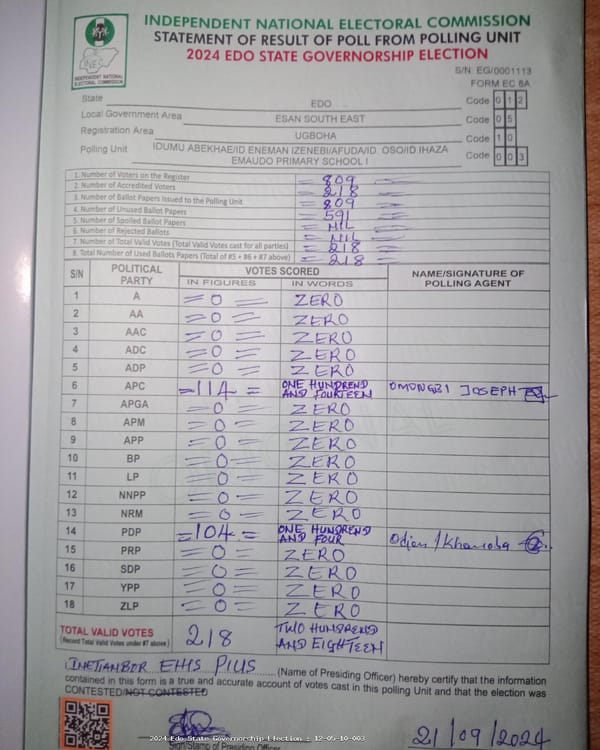 INDEPENDENT NATIONAL ELECTORAL COMMISSION
STATEMENT OF RESULT OF POLL FROM POLLING UNIT
2024 EDO STATE GOVERNORSHIP ELECTION
INEC
INDEPENDENT NATIONAL
ELECTORAL COMMISSION
S/N: EG/0001113
FORM EC 8A
State EDO Code 0 1 2
Local Government Area ESAN SOUTH EAST Code 0 5
Registration Area UGBOHA Code 1 0
Polling Unit IDUMU ABEKHAE/ID ENEMAN IZENEBI/AFUDA/ID. OSO/ID IHAZA EMAUDO PRIMARY SCHOOL I Code 0 0 3
1. Number of Voters on the Register = 809 =
2. Number of Accredited Voters = 218 =
3. Number of Ballot Papers Issued to the Polling Unit = 809 =
4. Number of Unused Ballot Papers = 591 =
5. Number of Spoiled Ballot Papers = NIL =
6. Number of Rejected Ballots = NIL =
7. Number of Total Valid Votes (Total Valid Votes cast for all parties) = 218 =
8. Total Number of Used Ballots Papers (Total of #5 + #6 + #7 above) = 218 =
S/N POLITICAL PARTY VOTES SCORED NAME/SIGNATURE OF POLLING AGENT
IN FIGURES IN WORDS
1 A = 0 = ZERO
2 AA = 0 = ZERO
3 AAC = 0 = ZERO
4 ADC = 0 = ZERO
5 ADP = 0 = ZERO
6 APC = 114 = ONE HUNDREND AND FOURTEEN OMONGBI JOSEPH
7 APGA = 0 = ZERO
8 APM = 0 = ZERO
9 APP = 0 = ZERO
10 BP = 0 = ZERO
11 LP = 0 = ZERO
12 NNPP = 0 = ZERO
13 NRM = 0 = ZERO
14 PDP = 104 = ONE HUNDREND AND FOUR
15 PRP = 0 = ZERO
16 SDP = 0 = ZERO
17 YPP = 0 = ZERO
18 ZLP = 0 = ZERO
TOTAL VALID VOTES 218 TWO HUNDREND
(Record Total Valid Votes under #7 above) AND EIGHTEEN
EHIS PIUS (Name of Presiding Officer) hereby certify that the information
contained in this form is a true and accurate account of votes cast in this polling Unit and that the election was
CONTESTED/NOT CONTESTED
2024 Edo State Governorship Election : 12-05-10-003
Sign/Stamp of Presiding Officer
21/09/2024